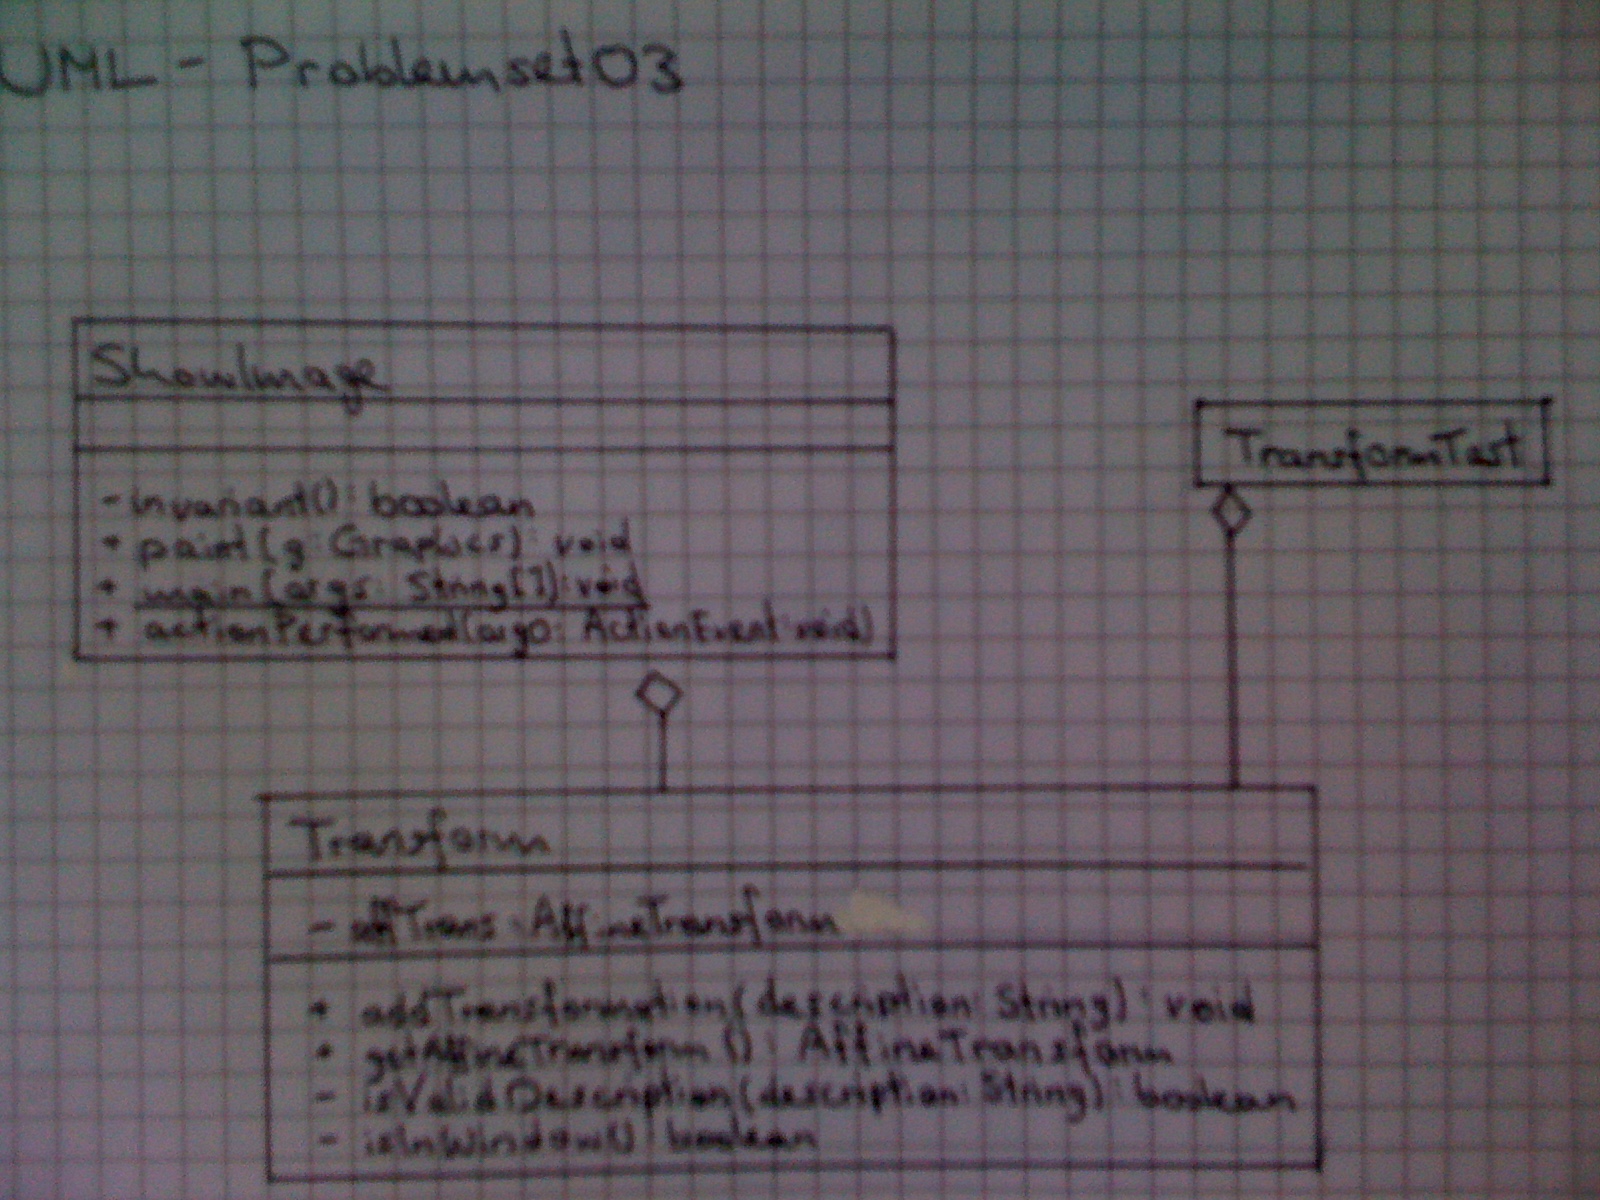 UML - Problemset03
ShowImage
- invariant(): boolean
+ paint(g: Graphics): void
+ main(args: String[]): void
+ actionPerformed(arg0: ActionEvent: void)
TransformTest
Transform
- affTrans: AffineTransform
+ addTransformation(description: String): void
+ getAffineTransform(): AffineTransform
- isValidDescription(description: String): boolean
- isInWindow(): boolean